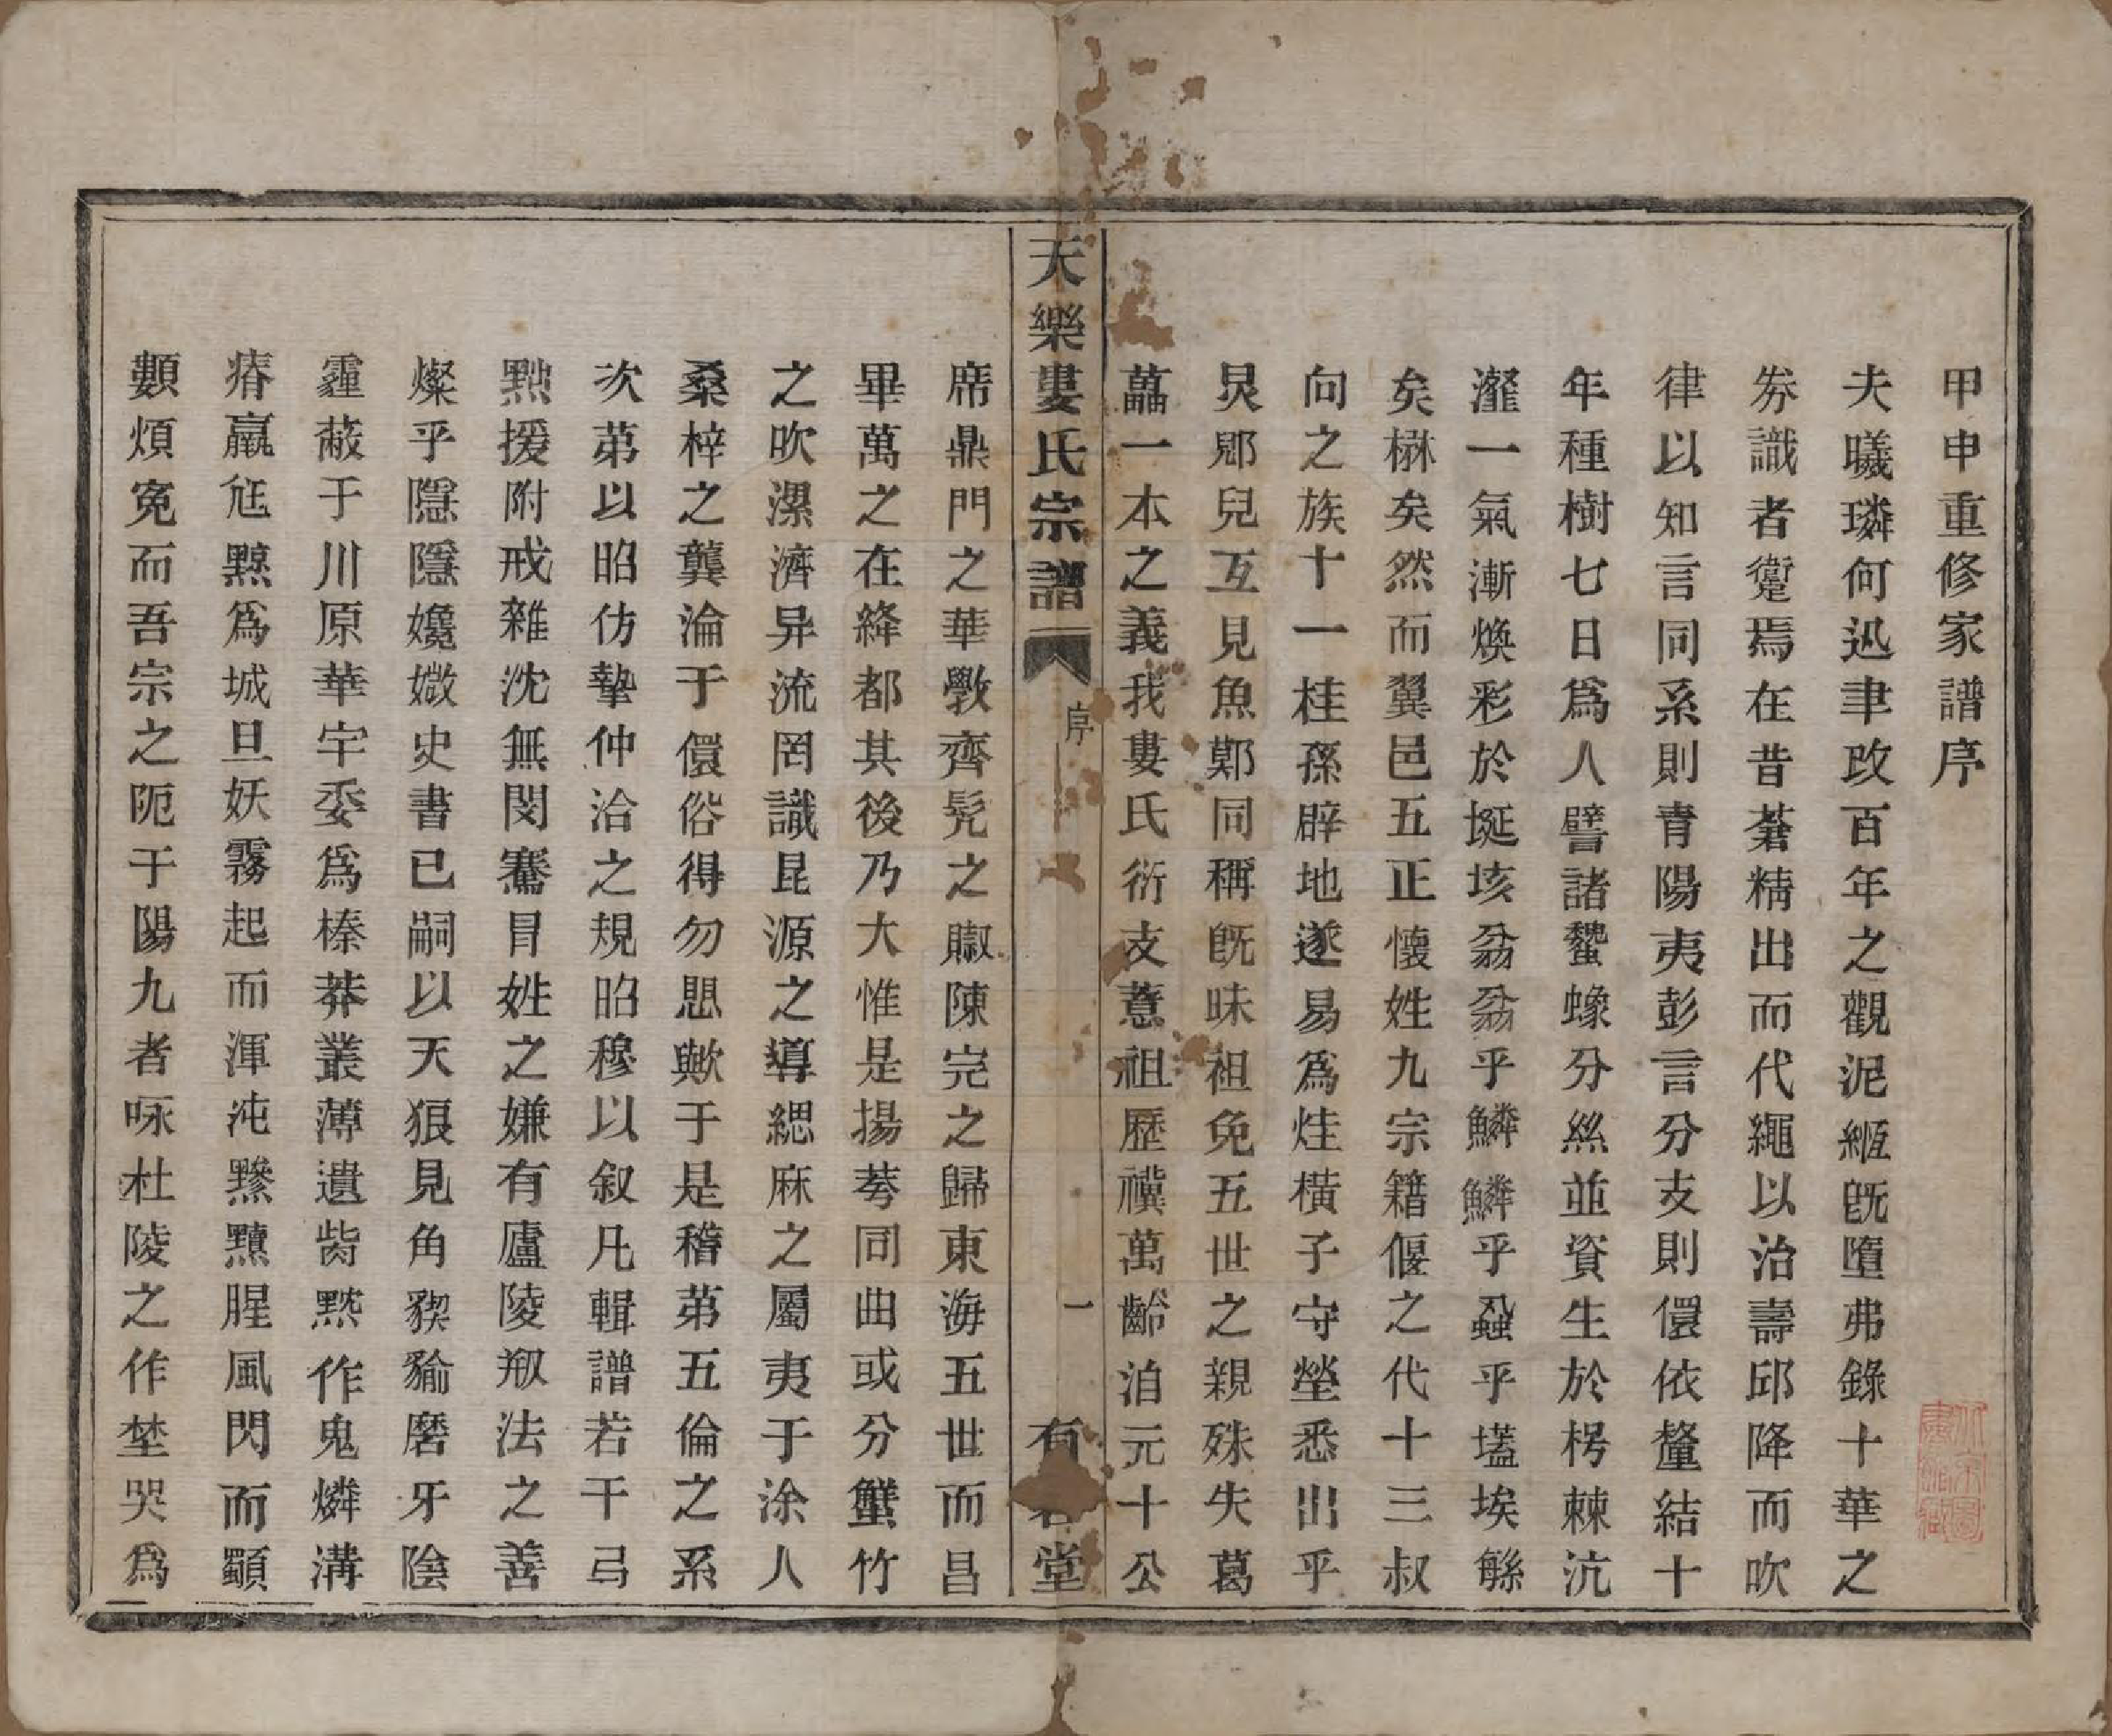 甲申重修家譜序
夫曦璘何迅聿改百年之觀泥縆旣墮弗錄十華之
劵識者躗焉在昔蒼精出而代繩以治壽邱降而吹
律以知言同系則青陽夷彭言分支則儇依釐結十
年種樹七日爲人譬諸蠶蝝分絲並資生於楞棘沆
瀣一氣漸煥彩於埏垓翁翁乎鱗鱗乎蝨乎壒埃緜
矣楙矣然而翼邑五正懷姓九宗籍偃之代十三叔
向之族十一桂孫辟地遂易爲炷橫子守塋悉出乎
炅郳兒互見魚鄭同稱旣昧祖免五世之親殊失葛
藟一本之義我婁氏衍支薏祖歷禩萬齡洎元十公
天樂婁氏宗譜
序
一
有 堂
席鼎門之華斆齊髡之賧陳完之歸東海五世而昌
畢萬之在絳都其後乃大惟是揚蒡同曲或分蠻竹
之吹漯濟异流罔識昆源之導緦麻之屬夷于涂人
桑梓之龔淪于儇俗得勿愳歟于是稽第五倫之系
次第以昭仿摯仲洽之規昭穆以叙凡輯譜若干弓
黜援附戒雜沈無閔騫冒姓之嫌有廬陵剏法之善
燦乎隱隱嬓嬓史書已嗣以天狼見角猰㺄磨牙陰
霾蔽于川原華宇委爲榛莽叢薄遺胔黙作鬼燐溝
瘠羸尩黥爲城旦妖霧起而渾沌黲黷腥風閃而顓
顟煩冤而吾宗之阨于陽九者咏杜陵之作埜哭爲